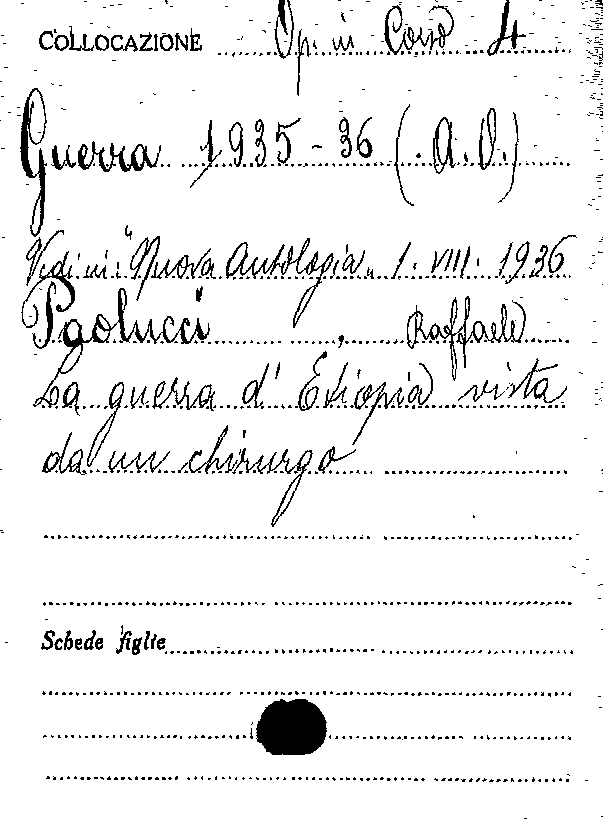 COLLOCAZIONE Op. in Corso 4
Guerra 1935-36 (. A.O.)
Vedi in: "Nuova Antologia" 1. VIII. 1936
Paolucci , Raffaele
La guerra d' Etiopia vista
da un chirurgo
Schede figlie